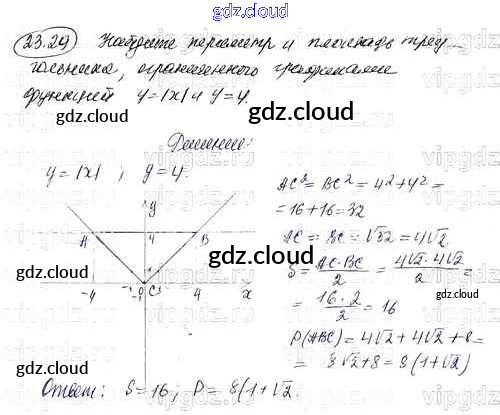 gdz.cloud
23.29 Найдите периметр и площадь треу-
гольника, ограниченного графиками
функций y=|x| и y=4.
gdz.cloud
Решение:
y=|x| ; y=4.
gdz.cloud
y
A 4 B
-4 -1 0 C 1 4 x
AC²=BC²=4²+4²=
=16+16=32
AC=BC=√32=4√2
gdz.cloud
S=AC·BC/2=4√2·4√2/2=
=16·2/2=16
P(ABC)=4√2+4√2+8=
8√2+8=8(1+√2)
gdz.cloud
gdz.cloud
Ответ: S=16; P=8(1+√2.
gdz.cloud